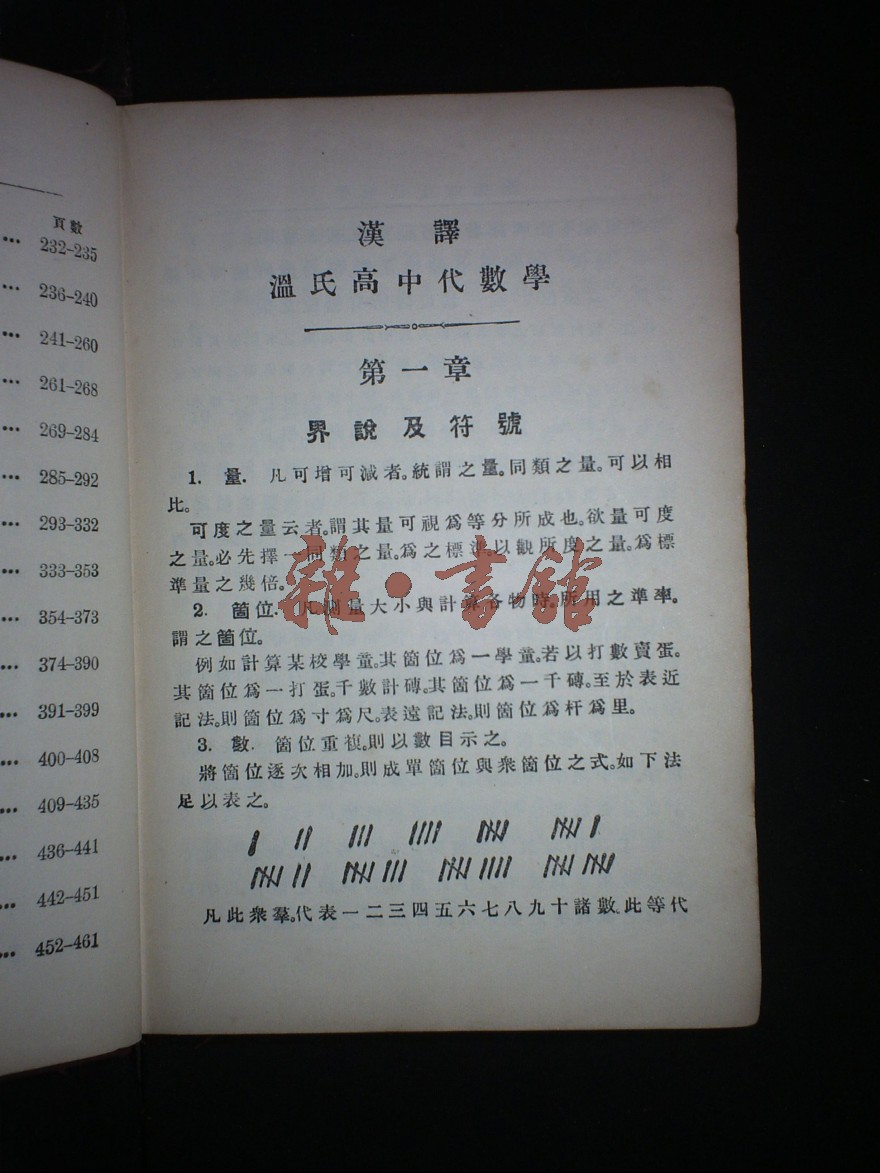 頁數
... 232–235
... 236–240
... 241–260
... 261–268
... 269–284
... 285–292
... 293–332
... 333–353
... 354–373
... 374–390
... 391–399
... 400–408
... 409–435
... 436–441
... 442–451
... 452–461
漢譯
溫氏高中代數學
第一章
界說及符號
1. 量. 凡可增可減者。統謂之量。同類之量。可以相
比。
可度之量云者。謂其量可視爲等分所成也。欲量可度
之量。必先擇一同類之量。爲之標準以觀所度之量。爲標
準量之幾倍。
2. 箇位. 凡測量大小與計算各物時。所用之準率。
謂之箇位。
例如計算某校學童。其箇位爲一學童。若以打數賣蛋。
其箇位爲一打蛋。千數計磚。其箇位爲一千磚。至於表近
記法。則箇位爲寸爲尺。表遠記法。則箇位爲杆爲里。
3. 數. 箇位重複。則以數目示之。
將箇位逐次相加。則成單箇位與衆箇位之式。如下法
足以表之。
凡此衆羣。代表一二三四五六七八九十諸數、此等代
雜·書館